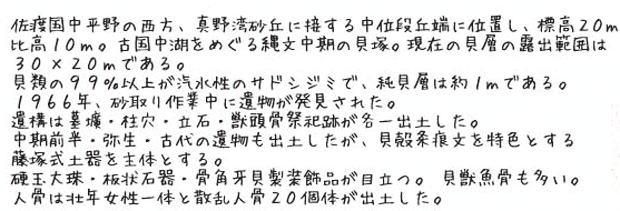 佐渡国中平野の西方、真野湾砂丘に接する中位段丘端に位置し、標高20m
比高10m。古国中湖をめぐる縄文中期の貝塚。現在の貝層の露出範囲は
30×20mである。
貝類の99%以上が汽水性のサドシジミで、純貝層は約1mである。
1966年、砂取り作業中に遺物が発見された。
遺構は墓壙・柱穴・立石・獣頭骨祭祀跡が各一出土した。
中期前半・弥生・古代の遺物も出土したが、貝殻条痕文を特色とする
藤塚式土器を主体とする。
硬玉大珠・板状石器・骨角牙貝製装飾品が目立つ。貝獣魚骨も多い。
人骨は壮年女性一体と散乱人骨20個体が出土した。